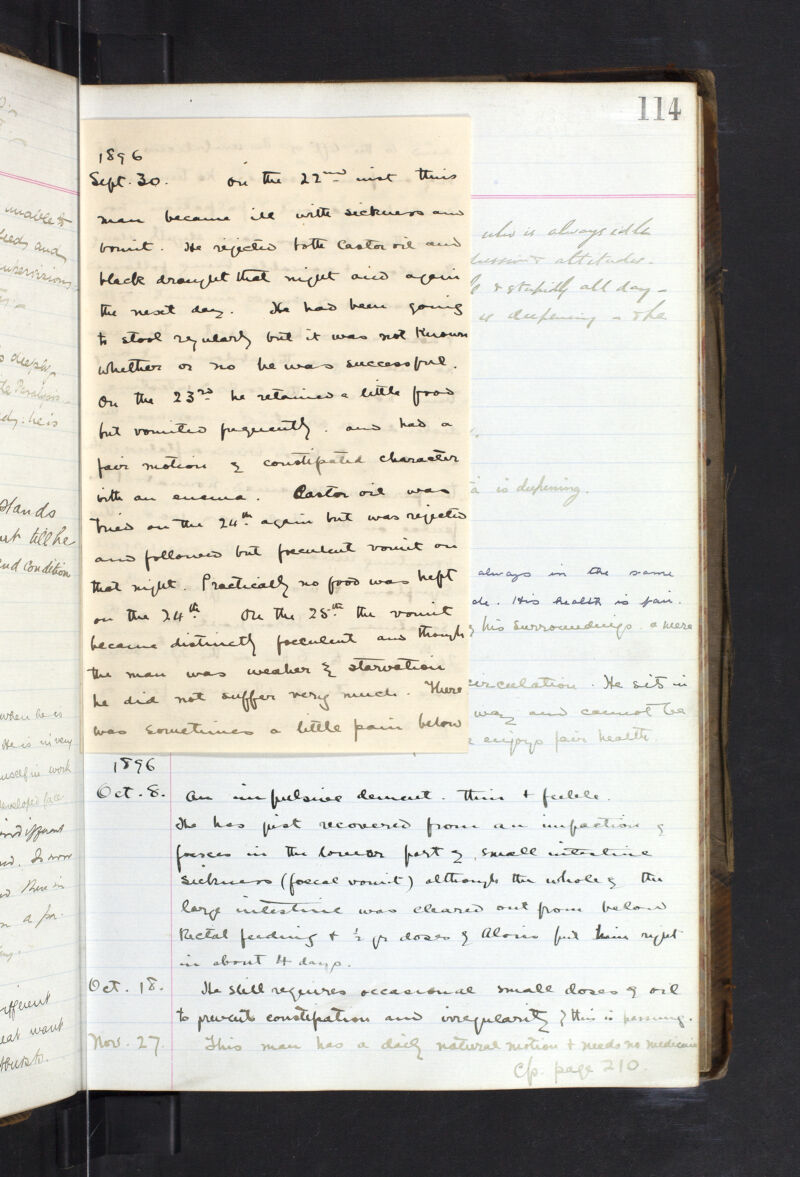 114
1896
Sept. 30. On the 22nd inst this
man became ill with sickness and
vomit. He rejected both Castor oil and
black draught that night and again
the next day. He had been going
to stool regularly but it was not known
whether or no he was successful.
On the 23rd he retained a little food
but vomited frequently. and had a
fair motion of constipated character
with an enema. Castor oil was
tried on the 24th again but was rejected
and followed but foeculent vomit on
that night. Practically no food was kept
on the 24th On the 25th the vomit
became distinctly foeculent and though
the man was weaker & starvation
he did not suffer very much. There
was sometimes a little pain below
who is always idle
attitudes.
& stupidly all day -
is deepening - the
is deepening.
always in the same
His health is fair.
his surroundings. a mere
circulation. He sits in
way and cannot be
enjoys fair health.
1896
Oct. 8. An impulsive dement. thin & feeble.
He has just recovered from an impaction of
foeces in the lower part of small intestine
sickness (foecal vomit) although the whole of the
large intestine was cleared out from below
Rectal feeding & ½ gr doses of Aloin put him right
in about 4 days.
Oct. 18. He still requires occasional small doses of oil
to prevent constipation and irregularity & this is passing.
Nov. 27. This man has a daily natural motion & needs no medicine
Cp. page 210.
unable to
feeds and
deeply
he is
Glands
till he
and condition
when he is
He is in very
himself in work
developed
indifferent
in a
different
want